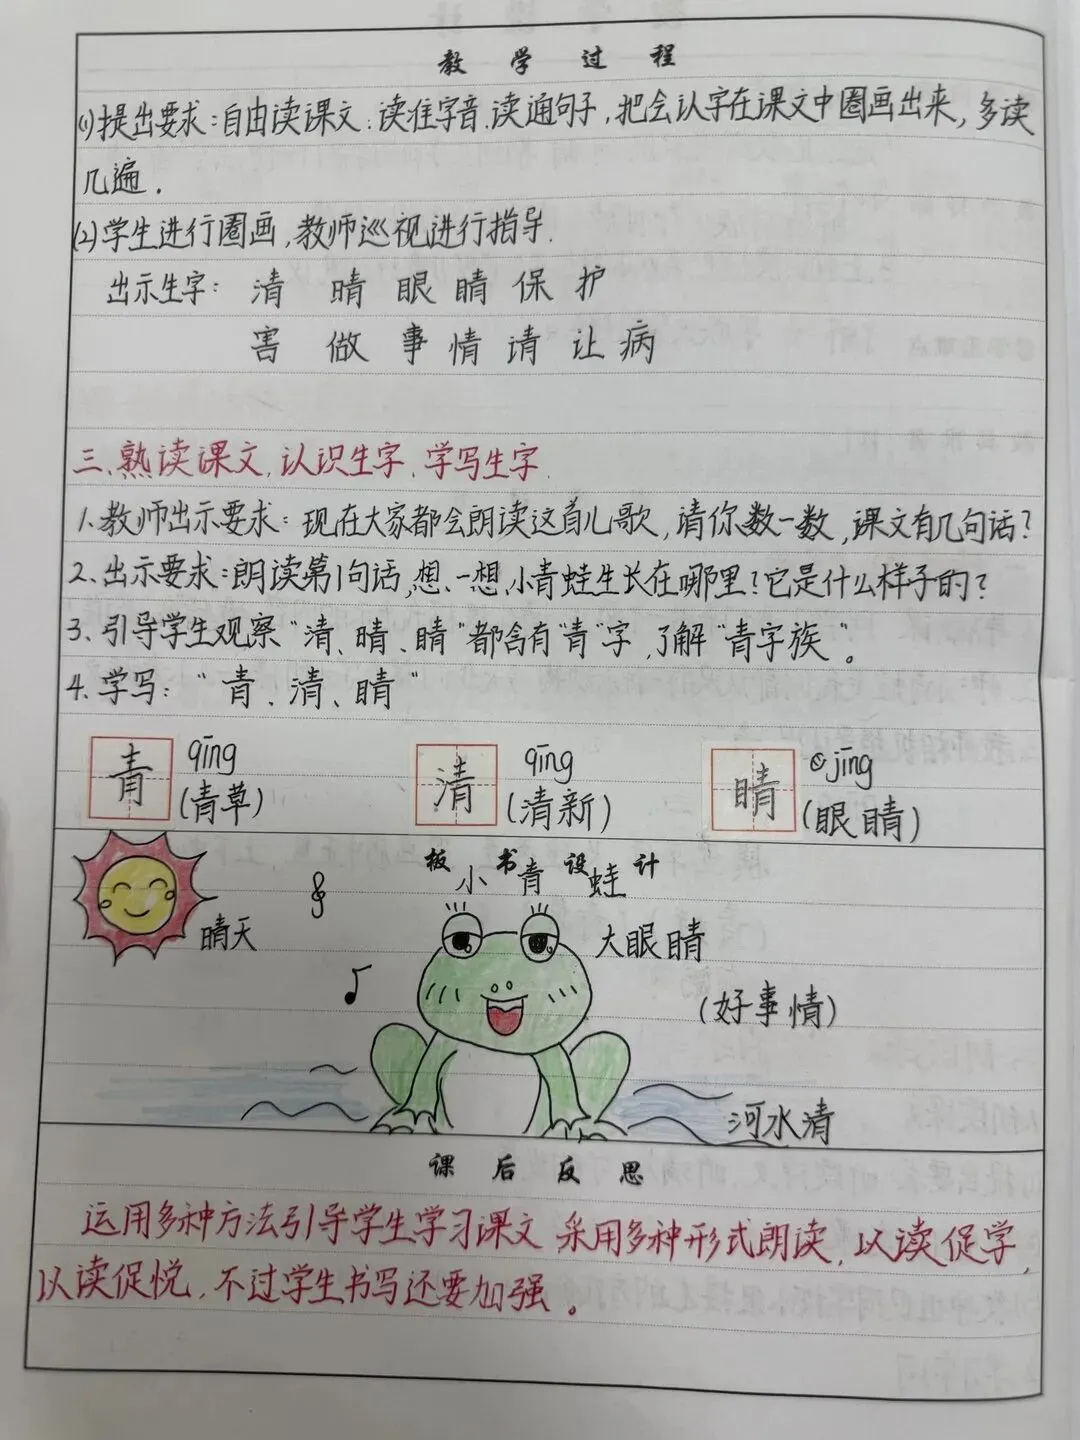 教 学 过 程
(1)提出要求:自由读课文:读准字音.读通句子,把会认字在课文中圈画出来,多读
几遍.
(2)学生进行圈画,教师巡视进行指导.
出示生字: 清 晴 眼 睛 保 护
害 做 事 情 请 让 病
三、熟读课文,认识生字,学写生字.
1、教师出示要求:现在大家都会朗读这首儿歌,请你数一数,课文有几句话?
2、出示要求:朗读第1句话,想一想,小青蛙生长在哪里?它是什么样子的?
3、引导学生观察"清、晴、睛"都含有"青"字,了解"青字族"。
4、学写:"青、清、睛"
青 qīng 清 qīng 睛 jīng
(青草) (清新) (眼睛)
板 书 设 计
小 青 蛙
晴天 大眼睛
(好事情)
河水清
课 后 反 思
运用多种方法引导学生学习课文 采用多种形式朗读,以读促学,
以读促悦,不过学生书写还要加强。